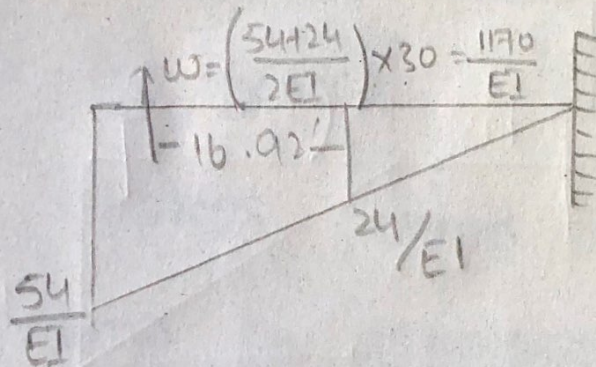 W = (54+24 / 2EI) × 30 = 1170 / EI
16.92'
24/EI
54/EI